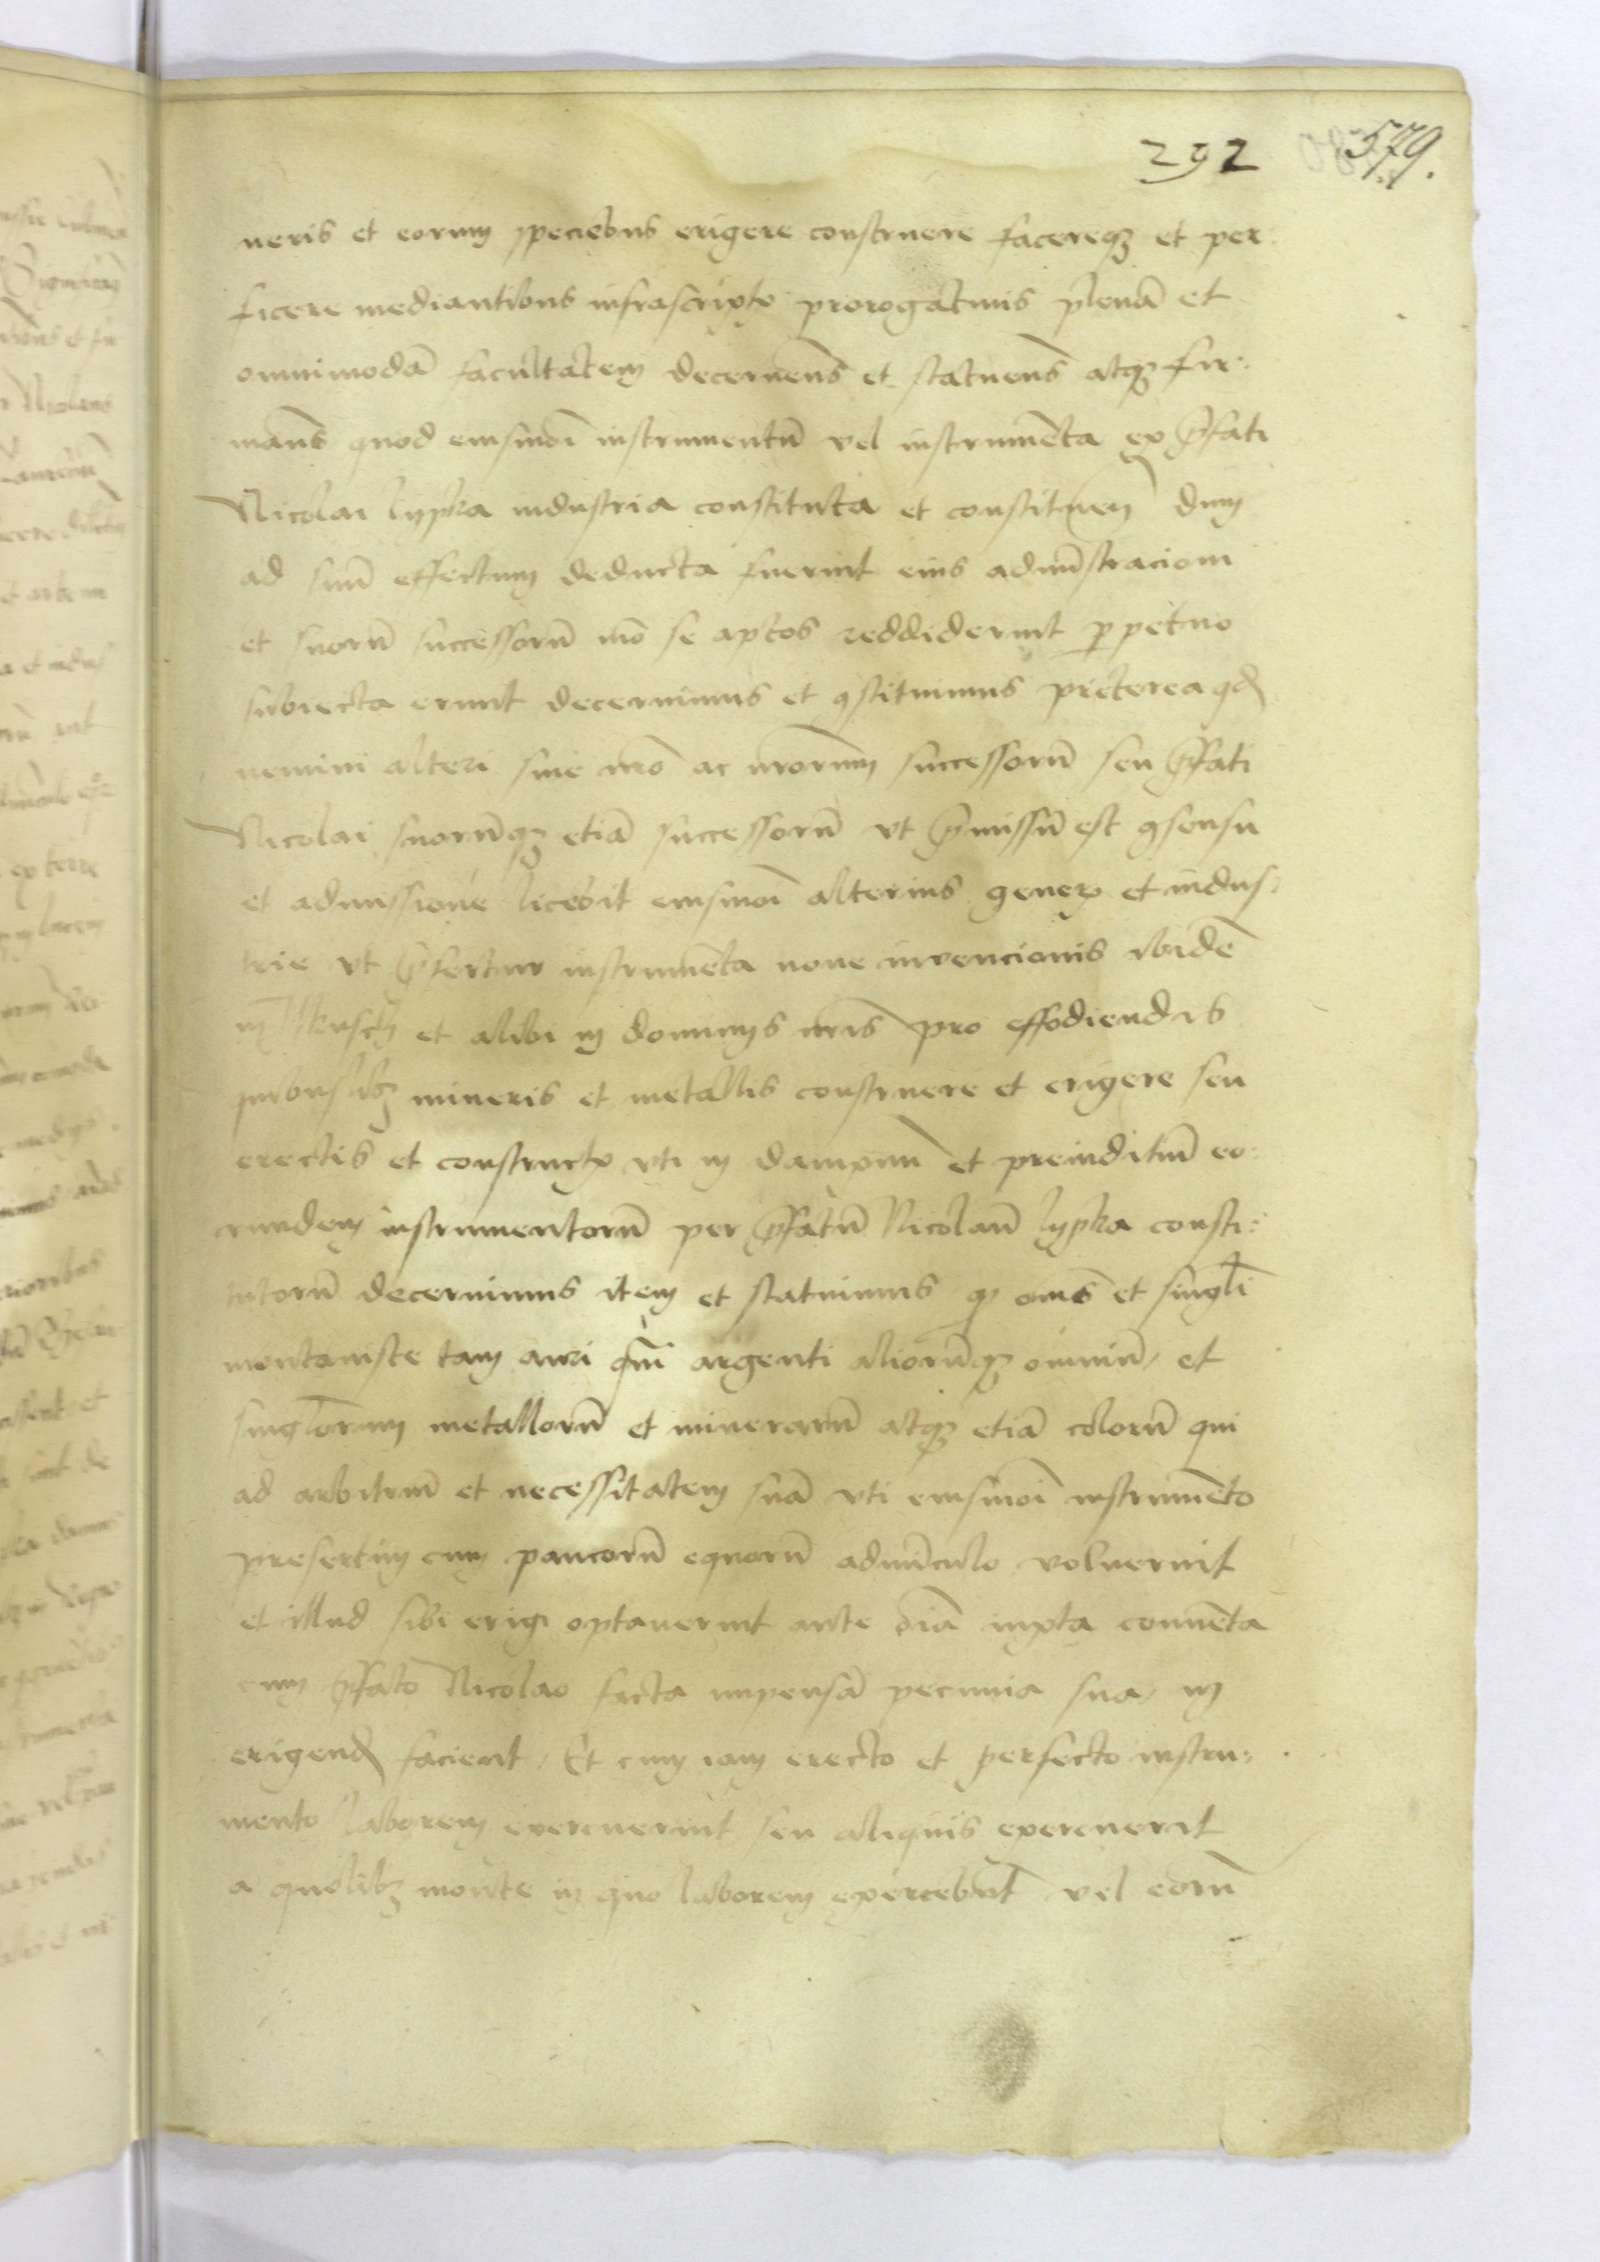 292 579.
neris et eorum speciebus erigere construere facereqꝫ et per
ficere mediantibus infrascriptꝭ prorogatiuis plenā et
omnimodā facultatem decernens̄ et statuens̄ atqꝫ fir:
mans̄ quod eiusmōi instrumentū vel instrumēta ex p̄fati
Nicolai lypka industria constituta et constituen̄ dum
ad suū effectum deducta fuerint eius admīstracioni
et suorū successorū mō se aptos reddiderint ꝑpetuo
subiecta erunt decernimus et ꝯstituimus preterea qđ
nemini alteri sine nrō ac nrōrum successorū seu p̄fati
Nicolai suorūqꝫ etiā successorū vt p̄missū est ꝯsensu
et admissione licebit eiusmōi alterius generꝭ et indus:
trie vt p̄fertur instrumēta noue invencionis ibidē
in Ilkusch et alibi in dominijs nrīs pro effodiendis
quibuslibꝫ mineris et metallis construere et erigere seu
erectis et constructꝭ vti in dampnū et preiuditiū eo:
rundem instrumentorū per p̄fatū Nicolaū lypka consti:
tutorū decernimus item et statuimus qꝫ om̄s et singłi
montaniste tam auri qm̄ argenti aliorūqꝫ omniū et
singlōrum metallorū et minerarū atqꝫ etiā colorū qui
ad arbitriū et necessitatem suā vti eiusmōi instrumēto
presertim cum paucorū equorū adminīculo voluerint
et illud sibi erigi optauerint ante oīa iuxta conuēta
cum p̄fato Nicolao facta impensā pecunia sua in
erigendꝭ facient. Et cum iam erecto et perfecto instru:
mento laborem exercuerint seu aliquis exercuerit
a quolibꝫ monte in quo laborem exercebūt vel eorū